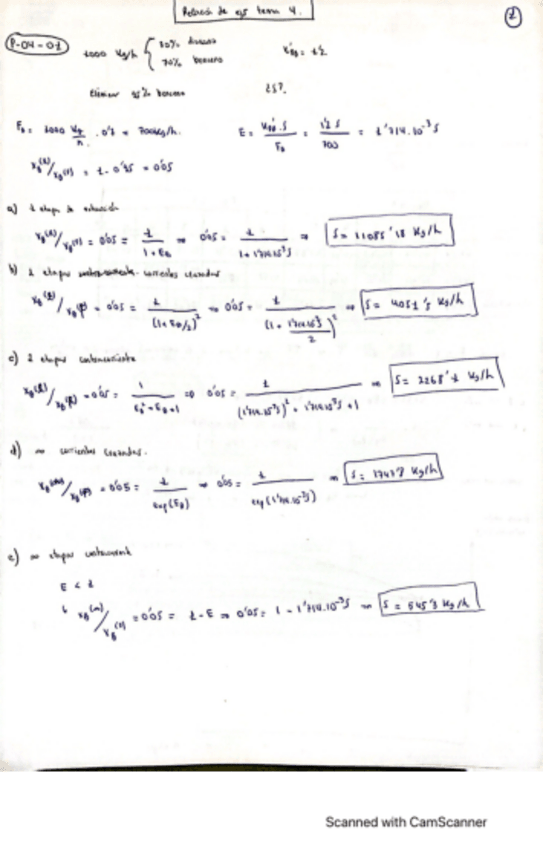 Relación de ejs tema 4.
1
P-04-01
1000 Kg/h { 30% dioxano
70% benceno
K'DB = 1'2
Eliminar 95% benceno
¿S?
FB = 1000 Kg/h · 0'7 = 700 Kg/h.
E = K'DB · S / FB = 1'2 S / 700 = 1'714·10⁻³ S
xB(R)/xB(F) = 1 - 0'95 = 0'05
a) 1 etapa de extracción
xB(R)/xB(F) = 0'05 = 1 / 1 + EB ⇒ 0'05 = 1 / 1 + 1'714·10⁻³ S ⇒ S = 11085'18 Kg/h
b) 2 etapas corrientes cruzadas
xB(R)/xB(F) = 0'05 = 1 / (1 + EB/2)² ⇒ 0'05 = 1 / (1 + 1'714·10⁻³ S / 2)² ⇒ S = 4051'5 Kg/h
c) 2 etapas contracorriente
xB(R)/xB(F) = 0'05 = 1 / EB² + EB + 1 ⇒ 0'05 = 1 / (1'714·10⁻³ S)² + 1'714·10⁻³ S + 1 ⇒ S = 2268'1 Kg/h
d) ∞ corrientes cruzadas.
xB(∞)/xB(F) = 0'05 = 1 / exp(EB) ⇒ 0'05 = 1 / exp(1'714·10⁻³ S) ⇒ S = 1747'8 Kg/h
e) ∞ etapas contracorrient
E < 1
xB(∞)/xB(F) = 0'05 = 1 - E ⇒ 0'05 = 1 - 1'714·10⁻³ S ⇒ S = 545'3 Kg/h
Scanned with CamScanner